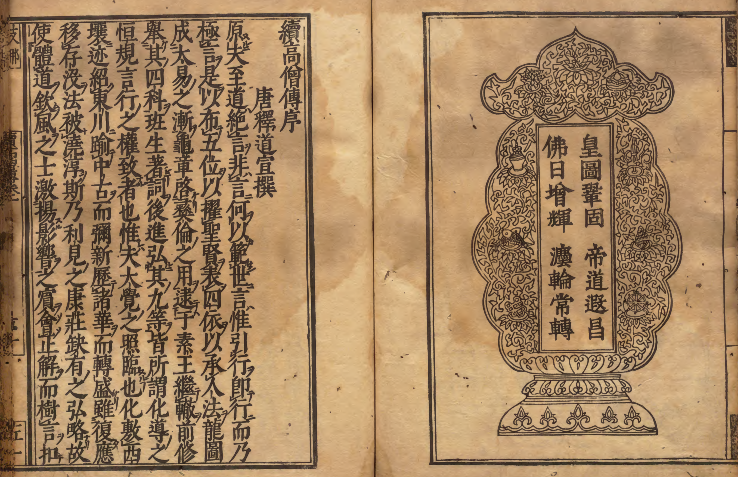 皇圖鞏固 帝道遐昌
佛日增輝 灋輪常轉
續高僧傳序
唐釋道宣撰
原夫至道絕言非言何以範世言惟引行即行而乃
極言是以布五位以擢聖賢表四依以承人法龍圖
成太易之漸龜章啓彝倫之用逮于素王繼轍前修
舉其四科班生著詞後進弘其九等皆所謂化導之
恒規言行之權致者也惟夫大覺之照臨也化敷西
壤迹紹東川踰中古而彌新歷諸華而轉盛雖復應
移存沒法被澆淳斯乃利見之康莊缺有之弘略故
使體道欽風之士激揚影響之賓會正解而樹言扣